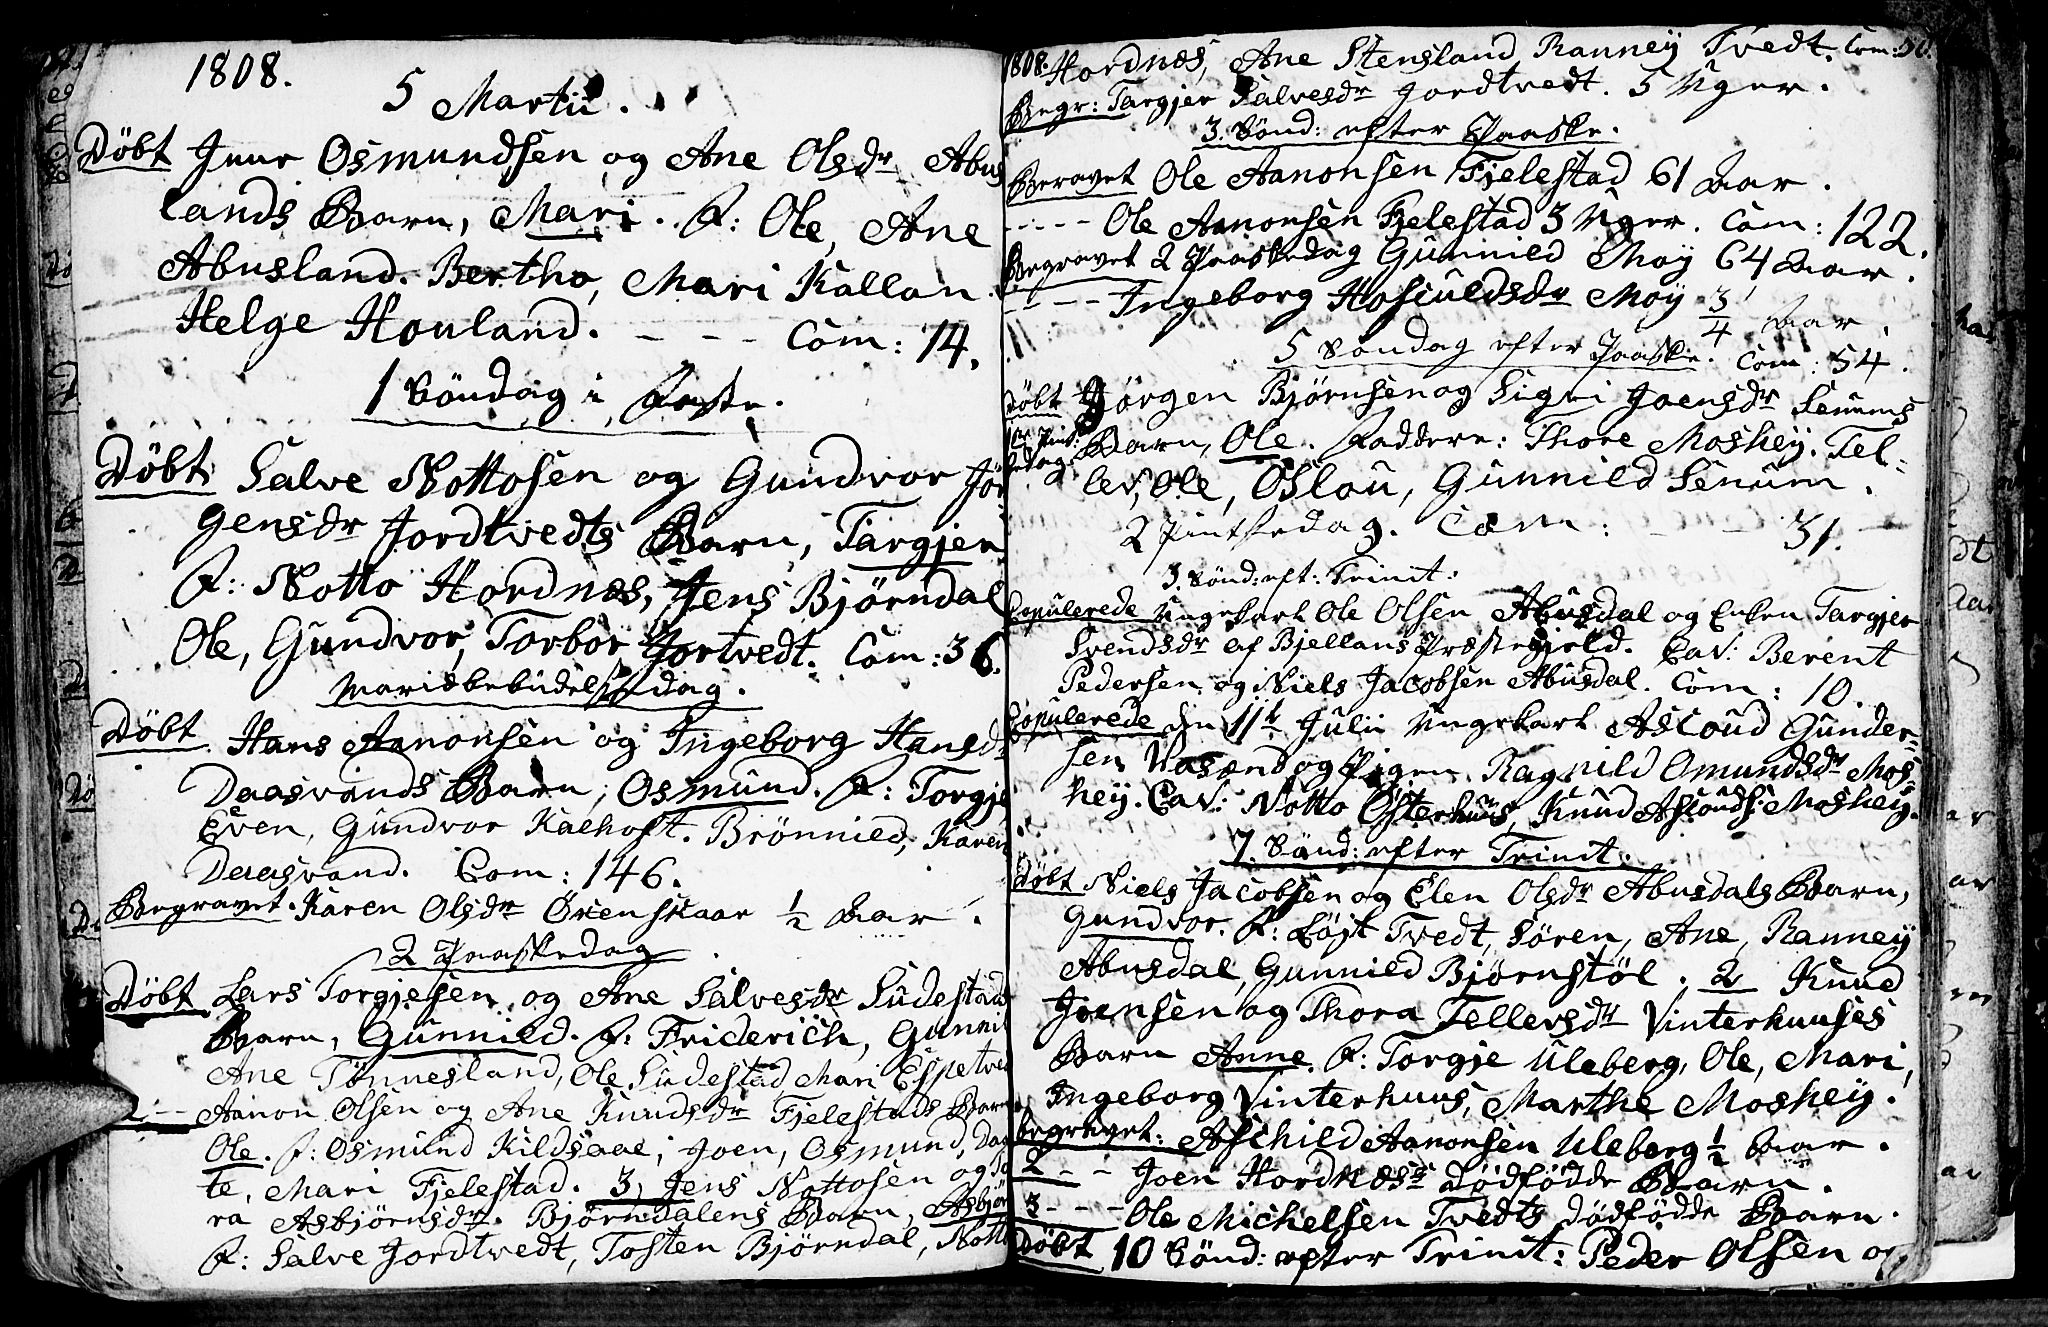 1808.
5 Martii.
Døbt Juur Osmundsen og Ane Olsdr Abus
lands Barn, Mari. F: Ole, Ane
Abusland. Bertho, Mari Kallan.
Helge Houland. - - - Com: 14.
1 Söndag i Faste.
Döbt: Salve Nottosen og Gundvor Jör
gensdr Jordtvedts Barn, Targjer
F: Notto Hordnes, Jens Bjørndal
Ole, Gundvor, Torbor Jortvedt. Com: 36.
Mariæbebudelsesdag.
Döbt Hans Aanonsen og Ingeborg Hansdr
Daasvands Barn, Osmund. F: Torgje
Even, Gundvor Kalhoft. Brønnild, Karen
Daasvand. Com: 146.
Begravet. Karen Olsdr Øxenskaar ½ Aar.
2 Paaskedag
Døbt Lars Torgjesen og Ane Salvesdr Sudestads
Barn, Gunnild. F: Friderich, Gunnil
Ane Tønnesland, Ole Sudestad Mari Espetved
2. -- Aanon Olsen og Ane Knudsdr Fjelestads Barn
Ole. F: Osmund Kildsaae, Joen, Osmund, Daa
te, Mari Fjelestad. 3, Jens Nottosen og
ra Asbjørnsdr. Bjørndalens Barn, Asbjör
F: Salve Jordtvedt, Tosten Bjørndal, Notto
1808. Hordnes, Ane Stensland Ranney Tvedt. Com: 50.
Begr: Targjer Salvesdr Jordtvedt. 5 Uger.
3. Sönd: efter Paaske.
Beravet Ole Aanonsen Fjelestad 61 Aar.
- - - - - Ole Aanonsen Fjelestad 3 Uger. Com: 122.
Begravet 2 Paaskedag Gunnild Moy 64 Aar.
- - - - Ingeborg Hosculdsdr Moy ¾ Aar.
5 Søndag efter Paaske. Com: 54.
Døbt Jörgen Bjørnsen og Sigri Joensdr Senums
1ste Pint: Barn, Ole. Faddere: Thore Moshey. Tel-
sedag. lev, Ole, Oslou, Gunnild Senum.
2 Pintsedag. Com: - - 31.
3 Sönd: eft: Trinit:
Copulerede Ungekarl Ole Olsen Abusdal og Enken Targjer
Svendsdr af Bjellans Præstegjeld. Cav: Berent
Pedersen og Niels Jacobsen Abusdal. Com: 10.
Copulerede den 11te Julii Ungekarl Asloud Gunder-
sen Vasend og Pigen Ragnild Omundsdr Mos
hey. Cav: Notto Østerhuus, Knud Aslouds: Moshey.
7. Sönd: efter Trinit.
Døbt Niels Jacobsen og Elen Olsdr Abusdals Barn,
Gundvor. F: Løjt Tvedt, Sören, Ane, Ranney
Abusdal, Gunnild Bjørnstöl. 2 Knud
Joensen og Thora Tellevsdr Vinterhuuses
Barn Anne. F: Torgje Uleberg, Ole, Mari,
Ingeborg Vinterhuus, Marthe Moshey.
Begravet: Aschild Aanonsen Uleberg ½ Aar.
2 - - Joen Hordnæss dödfödde Barn.
3 - - - Ole Michelsen Tvedts dödfödde Barn.
Døbt 10 Sönd: efter Trinit: Peder Olsen og